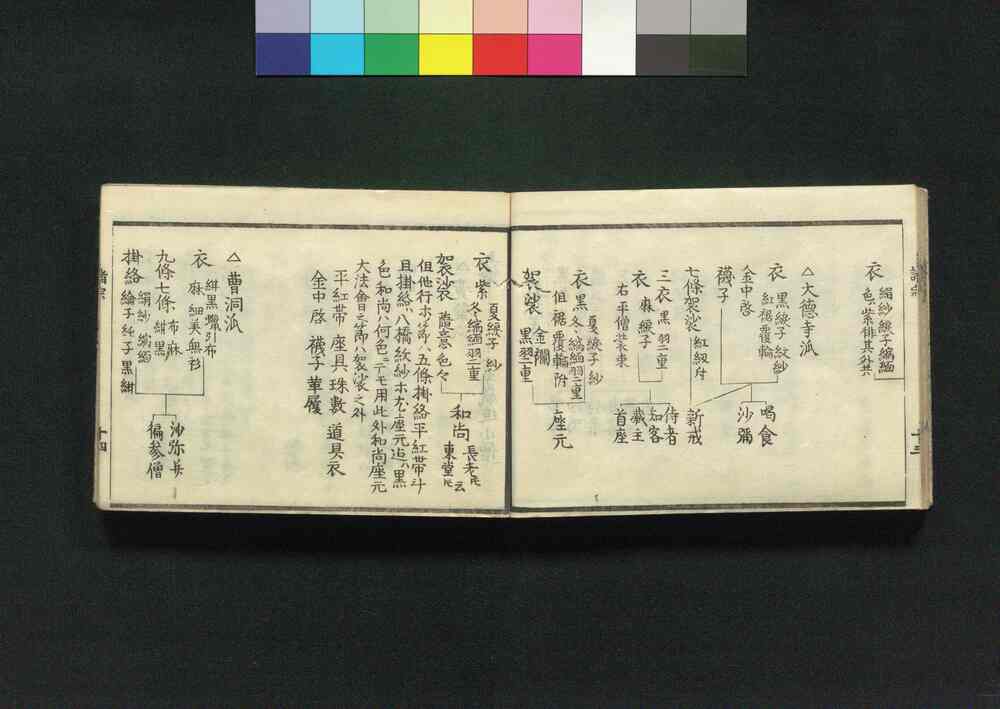 衣 絹紗綾子縮緬
色ハ紫緋其外共
△大德寺派
衣 黒綾子紋紗
紅裾覆輪
金中啓
襪子
喝食
沙彌
七條袈裟 紅紐付
新戒
三衣 黒羽二重
衣 麻綾子
右平僧裝束
侍者
知客
藏主
首座
衣 黒 夏綾子紗
冬縮緬羽二重
但裾覆輪附
袈裟 金襴
黒羽二重
座元
衣 紫 夏綾子紗
冬縮緬羽二重
袈裟 隨意色々
和尚 長老氏
東堂氏云
但他行ホノ節ハ五條掛絡平紅帯斗
且掛絡ハ八橋紋紗ホ尤座元迠ハ黒
色和尚ハ何色ニテモ用此外和尚座元
大法會之節ハ袈裟之外
平紅帯 座具 珠數 道具衣
金中啓 襪子 華履
△曹洞派
衣 緋黒蠟引布
麻細美無衫
九條七條 布麻
紺黒
絹紗縮緬
掛絡 綸子純子黒紺
沙弥并
徧参僧
諸宗
十三
諸宗
十四